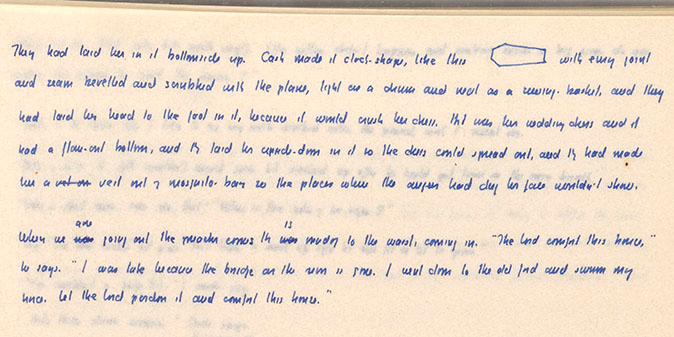 They had laid her in it bottomside up. Cash made it clock-shape, like this with every joint
and seam bevelled and scrubbed with the plane, tight as a drum and neat as a sewing-basket, and they
had laid her head to the foot in it, because it would crush her dress. It was her wedding dress and it
had a flare-out bottom, and they laid her upside-down in it so the dress could spread out, and they had made
her a veil out of mosquito bar so the places where the augers had dug her face wouldn't show.
are is
When we was going out the preacher comes. He was muddy to the waist, coming in. "The Lord comfort this house,"
he says. "I was late because the bridge on the river is gone. I went down to the old ford and swum my
horse. Let the Lord pardon it and comfort this house."